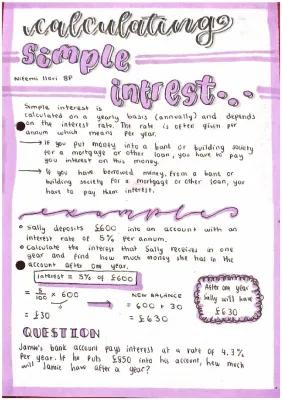 calculating
Simple
Nifemi Ilori 8P
intrest...
Simple interest is
calculated on a yearly basis (annually) and depends
on the interest rate. The rate is often given per
annum which means per year.
→ If you put money into a bank or building society
for a mortgage or other loan, you have to pay
you interest on this money.
→ If you have borrowed money, from a bank or
building society for a mortgage or other loan, you
have to pay them interest.
examples
Sally deposits £600 into an account with an
interest rate of 5% per annum.
Calculate the interest that Sally receives in one
year and find how much money she has in the
account after one year.
interest = 5% of £600
= 5/100 × 600
= £30
NEW BALANCE
= 600 + 30
= £630
After one year
Sally will have
£630
QUESTION
Jamie's bank account pays interest at a rate of 4.3%
per year. If he puts £850 into his account, how much
will Jamie have after a year?